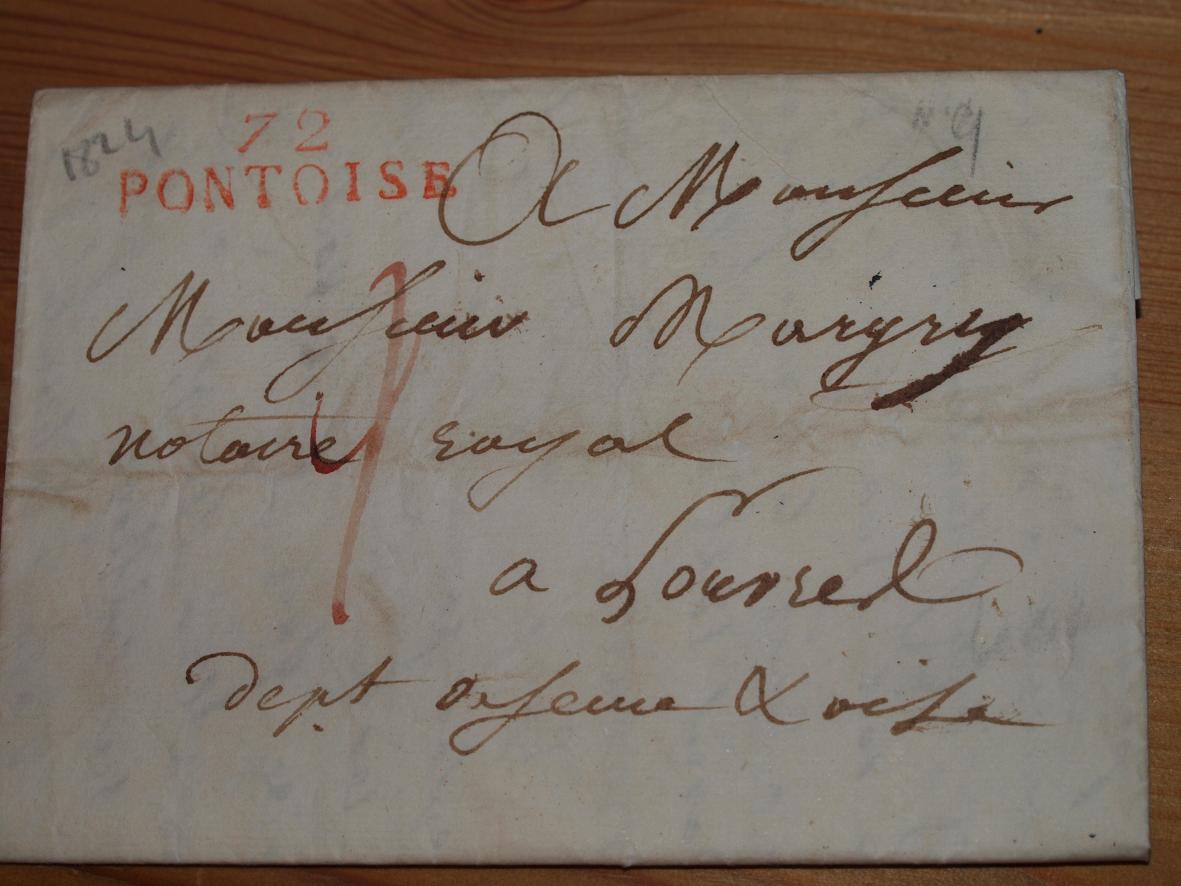 1824
N. 9
72
PONTOISE
A Monsieur
Monsieur Margry
notaire royal
a Louvres
dept de seine & oise